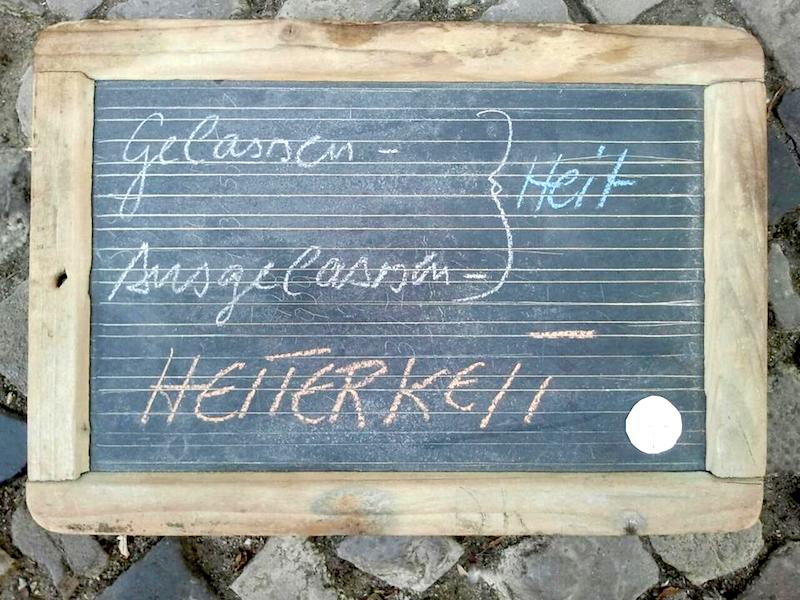 Gelassen- } Heit
Ausgelassen-
HEITERKEIT